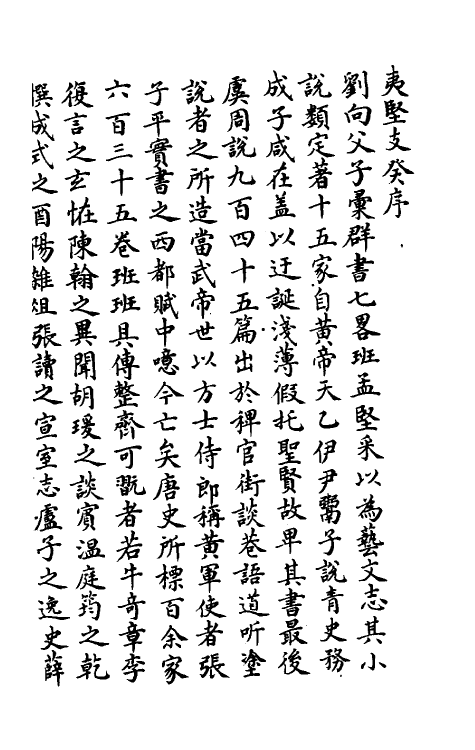 夷堅支癸序
劉向父子彙群書七畧班孟堅采以為藝文志其小
說類定著十五家自黃帝天乙伊尹鬻子說青史務
成子咸在盖以迂誕淺薄假托聖賢故卑其書最後
虞周說九百四十五篇出於稗官街談巷語道听塗
說者之所造當武帝世以方士侍郎稱黃軍使者張
子平實書之西都賦中噫今亡矣唐史所標百余家
六百三十五卷班班具傳整齊可翫者若牛奇章李
復言之玄恠陳翰之異聞胡璦之談賓温庭筠之乾
𦠆成式之酉陽雜俎張讀之宣室志盧子之逸史薛